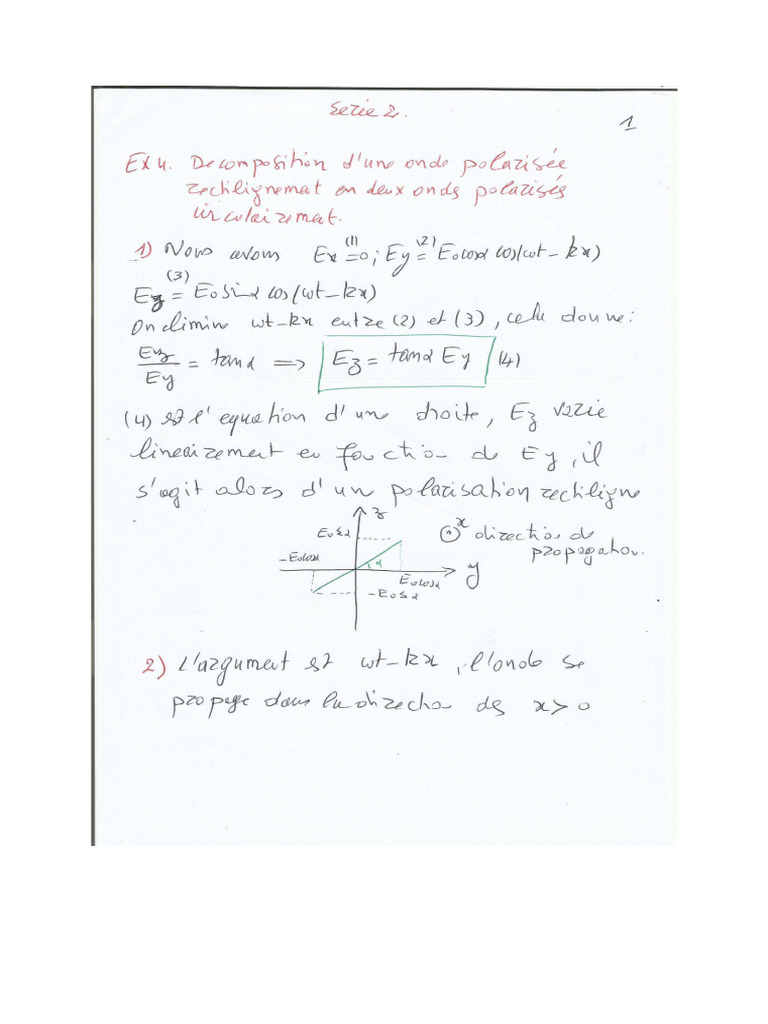 Serie 2.
1
EX 4. Decomposition d'une onde polarisée
rectilignemat en deux onds polarisés
circulairemat.
1) Nous avons Ex =(1) 0 ; Ey =(2) E0cosα cos(wt-kx)
Ez =(3) E0 sinα cos(wt-kx)
On elimine wt-kx entre (2) et (3), cela donne:
Ez/Ey = tanα ⟹ Ez = tanα Ey (4)
(4) est l'equation d'une droite, Ez varie
lineairement en fonction de Ey, il
s'agit alors d'un polarisation rectiligne
z
E0sα
x direction de
propagation.
-E0cosα
α
E0cosα
y
-E0sα
2) L'argument est wt-kx, l'onde se
propage dans la direction des x>0